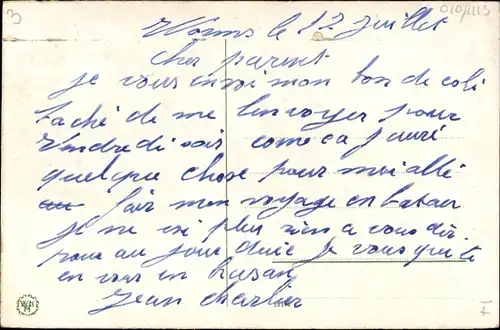 Worms le 12 juillet
Cher parent
je vous envoi mon bon de coli
taché de me l'envoyer pour
vendredi soir come ca j'auré
quelque chose pour moi allé
fair mon voyage en bataux
je ne plus rien a vous dir
pour au jour duie je vous quite
en vous en
Jean Charlier